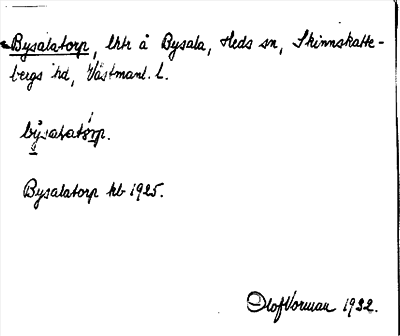 Bysalatorp, lht å Bysala, Heds sn, Skinnskatte-
bergs hd, Västmanl. l.
Bysalatorp kb 1925.
Olof Vorman 1932.